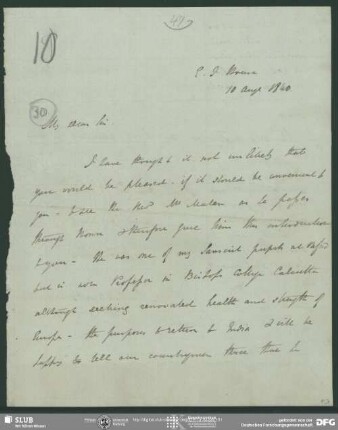 47
10
E. I. House
10 Augt 1840
30
My dear Sir
I have thought it not unlikely that
you would be pleased if it should be convenient to
you to see the Revd Mr Malan as he passes
through Bonn & therefore give him this introduction
to you. He was one of my Sanscrit pupils at Oxford
but is now Professor in Bishops College Calcutta
although seeking renovated health and strength of
Europe - He purposes to return to India & will be
happy to tell our countrymen there that
SLUB
Wir führen Wissen.
DFG
Deutsche Forschungsgemeinschaft